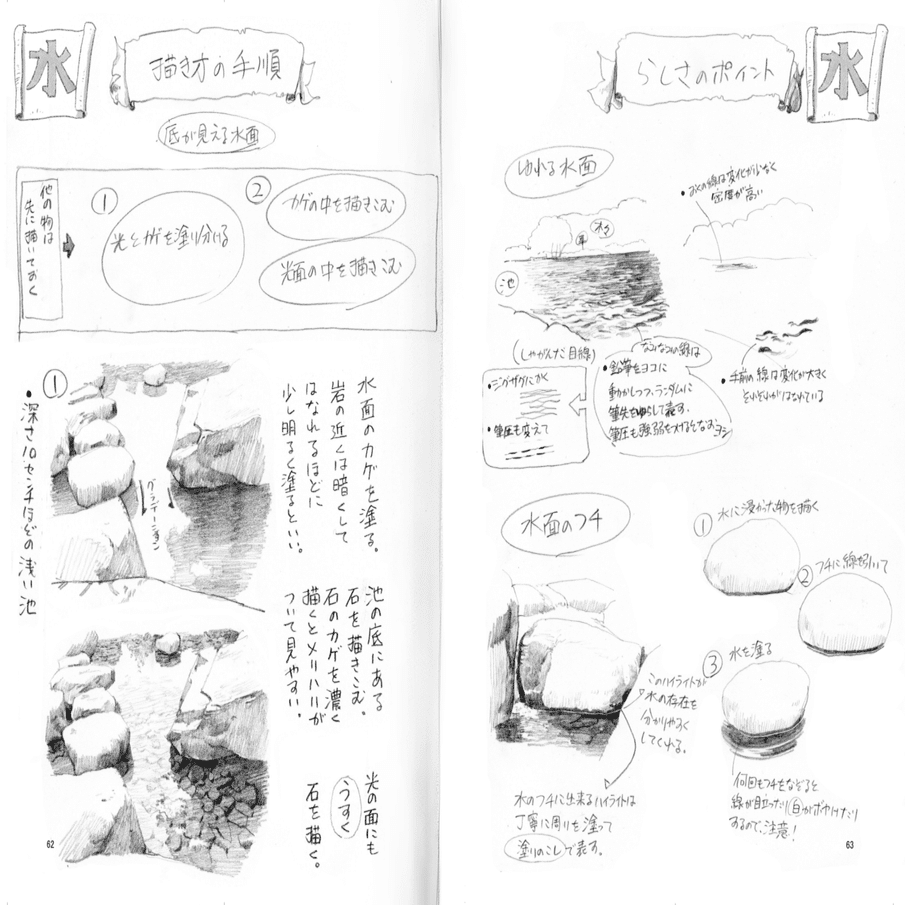 水
描き方の手順
底が見える水面
他の物は
先に描いておく
①
光とカゲを塗り分ける
②
カゲの中を描きこむ
光面の中を描きこむ
①
・深さ10センチほどの浅い池
グラデーション
水面のカゲを塗る。
岩の近くは暗くして
はなれるほどに
少し明るく塗るといい。
池の底にある
石を描きこむ。
石のカゲを濃く
描くとメリハリが
ついて見やすい。
光の面にも
うすく
石を描く。
62
らしさのポイント
水
ゆれる水面
・おくの線は変化が少なく
密度が高い
池
(しゃがんだ目線)
・ジグザグにかく
・筆圧も変えて
線は
・鉛筆をヨコに
動かしつつ、ランダムに
筆先をゆらして表す。
筆圧も強弱をつけるとなおヨシ
・手前の線は変化が大きく
それぞれがはなれている
水面のフチ
① 水に浸かった物を描く
② フチに線を引いて
③ 水を塗る
このハイライトが
水の存在を
分かりやすく
してくれる。
水のフチに出来るハイライトは
丁寧に周りを塗って
塗りのこしで表す。
何回もフチをなぞると
線が目立ったり白がボヤけたり
するので、注意!
63